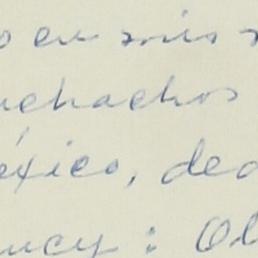 o en mis
uchachos
éxico, ded
ucy: Ol